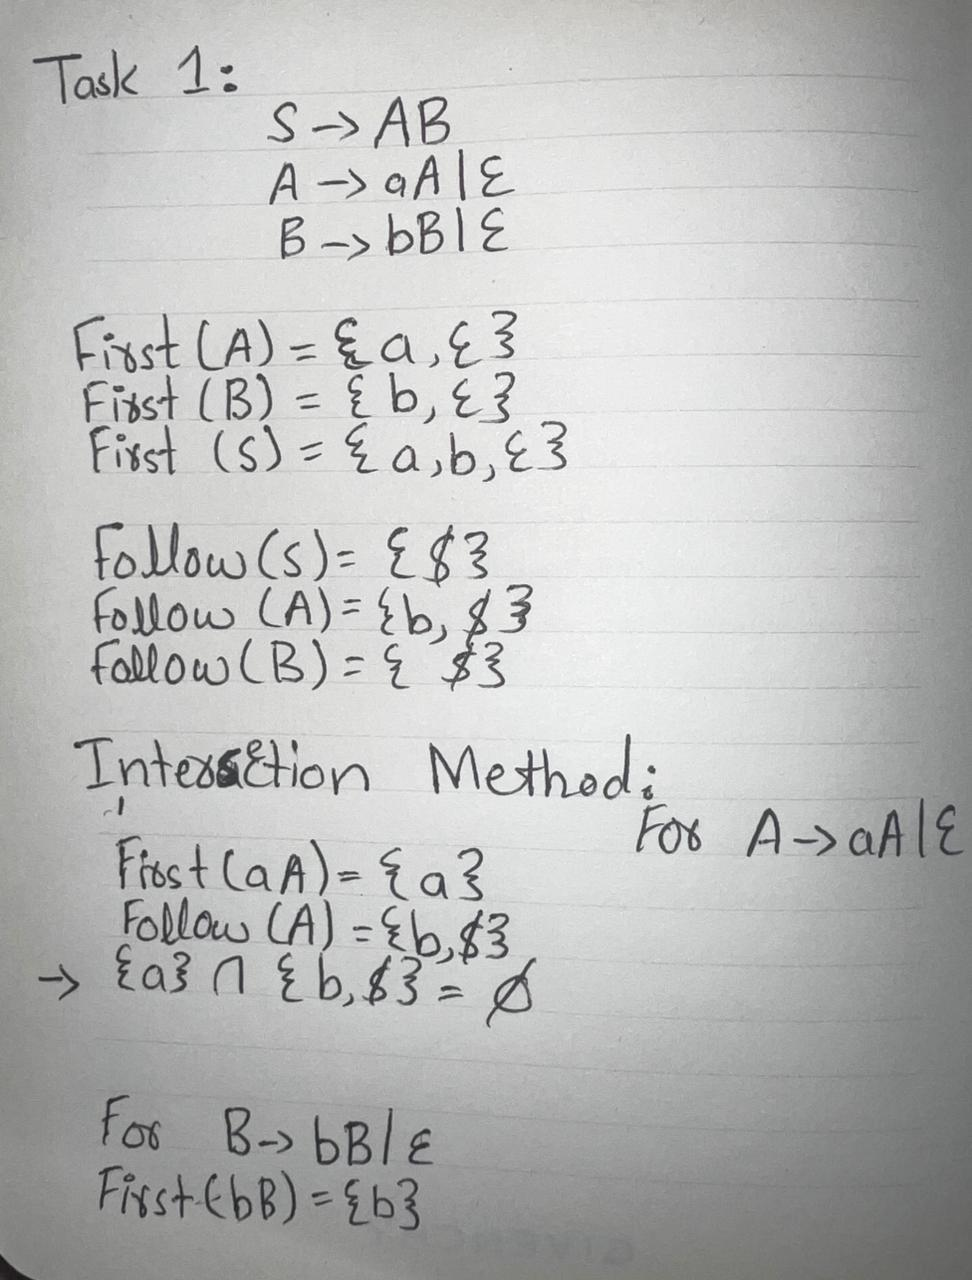 Task 1:
S → AB
A → aA | ε
B → bB | ε
First (A) = {a, ε}
First (B) = {b, ε}
First (S) = {a, b, ε}
Follow (S) = {$}
Follow (A) = {b, $}
Follow (B) = { $}
Intersection Method:
For A → aA | ε
First (aA) = {a}
Follow (A) = {b, $}
→ {a} ∩ {b, $} = ∅
For B → bB | ε
First (bB) = {b}